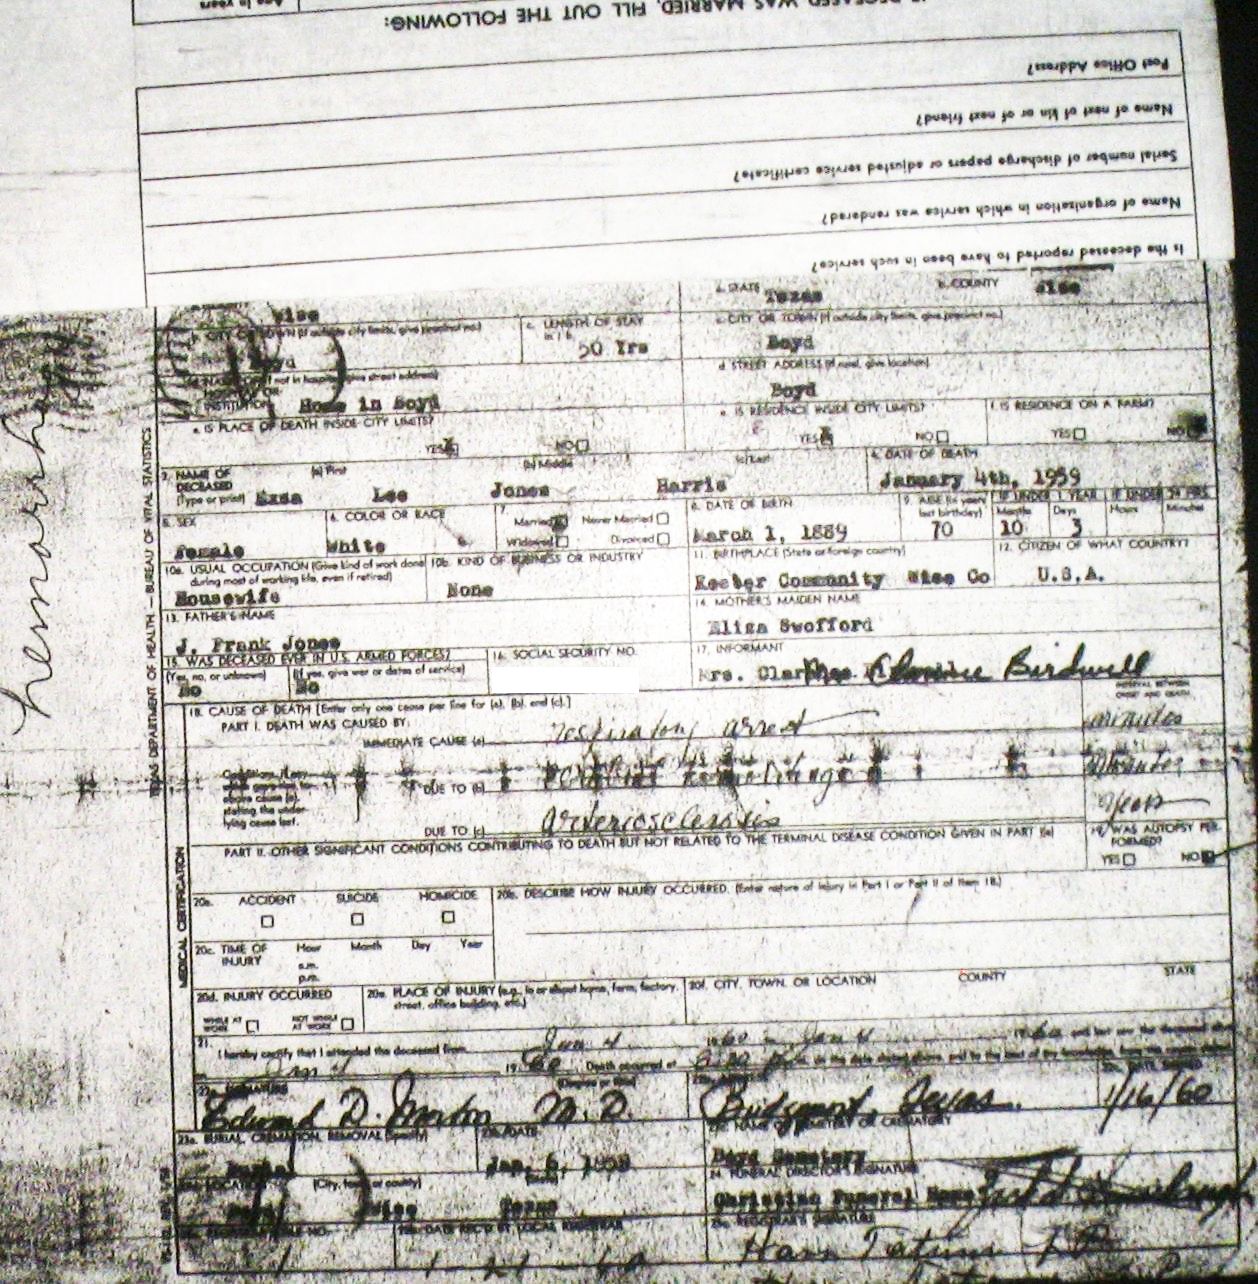 Age in years
IF DECEASED WAS MARRIED, FILL OUT THE FOLLOWING:
Post Office Address?
Name of next of kin or of next friend?
Serial number of discharge papers or adjusted service certificate?
Name of organization in which service was rendered?
Is the deceased reported to have been in such service?
hemorrhage
TEXAS DEPARTMENT OF HEALTH — BUREAU OF VITAL STATISTICS
Wise
a. STATE Texas b. COUNTY Wise
b. CITY OR TOWN (If outside city limits, give precinct no.) Boyd
c. LENGTH OF STAY in 1 b. 50 Yrs
c. CITY OR TOWN (If outside city limits, give precinct no.) Boyd
(If not in hospital, give street address)
INSTITUTION Home in Boyd
d. STREET ADDRESS (If rural, give location) Boyd
e. IS PLACE OF DEATH INSIDE CITY LIMITS? YES NO
e. IS RESIDENCE INSIDE CITY LIMITS? YES NO
f. IS RESIDENCE ON A FARM? YES NO
3. NAME OF DECEASED (Type or print)
(a) First (b) Middle (c) Last
Lee Jones Harris
4. DATE OF DEATH
January 4th, 1959
5. SEX Female
6. COLOR OR RACE White
7. Married Never Married Widowed Divorced
8. DATE OF BIRTH March 1, 1889
9. AGE (In years last birthday) 70
IF UNDER 1 YEAR Months 10 Days 3
IF UNDER 24 HRS. Hours Minutes
10a. USUAL OCCUPATION (Give kind of work done during most of working life, even if retired) Housewife
10b. KIND OF BUSINESS OR INDUSTRY None
11. BIRTHPLACE (State or foreign country)
Keeter Community Wise Co
12. CITIZEN OF WHAT COUNTRY? U.S.A.
13. FATHER'S NAME
J. Frank Jones
14. MOTHER'S MAIDEN NAME
Eliza Swofford
15. WAS DECEASED EVER IN U.S. ARMED FORCES?
(Yes, no, or unknown) No (If yes, give war or dates of service) No
16. SOCIAL SECURITY NO.
17. INFORMANT
Mrs. Birdwell
MEDICAL CERTIFICATION
18. CAUSE OF DEATH [Enter only one cause per line for (a), (b), and (c).]
INTERVAL BETWEEN ONSET AND DEATH
PART I. DEATH WAS CAUSED BY:
IMMEDIATE CAUSE (a) respiratory arrest minutes
Conditions, if any, which gave rise to above cause (a), stating the underlying cause last.
DUE TO (b) cerebral hemorrhage
DUE TO (c) arteriosclerosis years
PART II. OTHER SIGNIFICANT CONDITIONS CONTRIBUTING TO DEATH BUT NOT RELATED TO THE TERMINAL DISEASE CONDITION GIVEN IN PART I(a)
19. WAS AUTOPSY PERFORMED? YES NO
20a. ACCIDENT SUICIDE HOMICIDE
20b. DESCRIBE HOW INJURY OCCURRED. (Enter nature of injury in Part I or Part II of Item 18.)
20c. TIME OF INJURY Hour a.m. p.m. Month Day Year
20d. INJURY OCCURRED WHILE AT WORK NOT WHILE AT WORK
20e. PLACE OF INJURY (e.g., in or about home, farm, factory, street, office building, etc.)
20f. CITY, TOWN, OR LOCATION COUNTY STATE
21. I hereby certify that I attended the deceased from Jan 4 1960 to Jan 4 1960 and last saw the deceased alive
Jan 4 1960 Death occurred at on the date stated above, and to the best of my knowledge, from the causes stated.
22a. SIGNATURE (Degree or title)
Edward D. Morton M.D.
Bridgeport, Texas.
22c. DATE SIGNED
1/16/60
23a. BURIAL, CREMATION, REMOVAL (Specify)
Burial
23b. DATE
Jan. 6, 1959
23c. NAME OF CEMETERY OR CREMATORY
Boyd Cemetery
23d. LOCATION (City, town, or county) (State)
Boyd Wise Texas
24. FUNERAL DIRECTOR'S SIGNATURE
Christian Funeral Home
25b. DATE REC'D BY LOCAL REGISTRAR
25c. REGISTRAR'S SIGNATURE